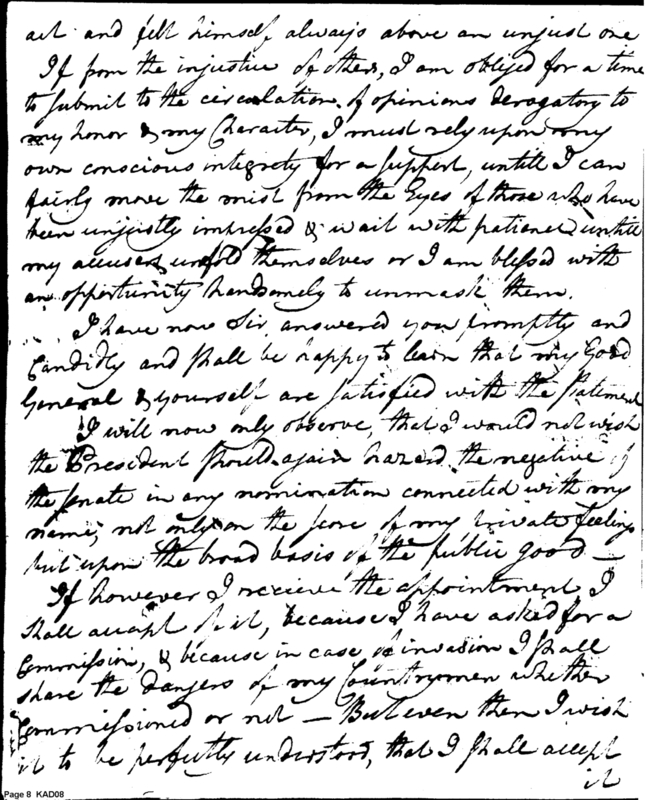 act and felt himself always above an unjust one
If from the injustice of others, I am obliged for a time
to submit to the circulation of opinions derogatory to
my honor & my Character, I must rely upon my
own conscious integrety for a support, untill I can
fairly move the mist from the Eyes of those who have
been unjustly impressed & wait with patience untill
my accusers unfold themselves or I am blessed with
an opportunity handsomely to unmask them.
I have now Sir, answered you promptly and
Candidly and shall be happy to learn that my Good
General & yourself are satisfied with the Statement
I will now only observe, that I would not wish
the President should again hazard the negative of
the senate in any nomination connected with my
name, not only on the score of my private feelings
but upon the broad basis of the public good —
If however I recieve the appointment I
shall accept of it, because I have asked for a
Commission, & because in case of invasion I shall
share the dangers of my Countrymen whether
Commissioned or not — But even then I wish
it to be perfectly understood, that I shall accept
it
Page 8 KAD08